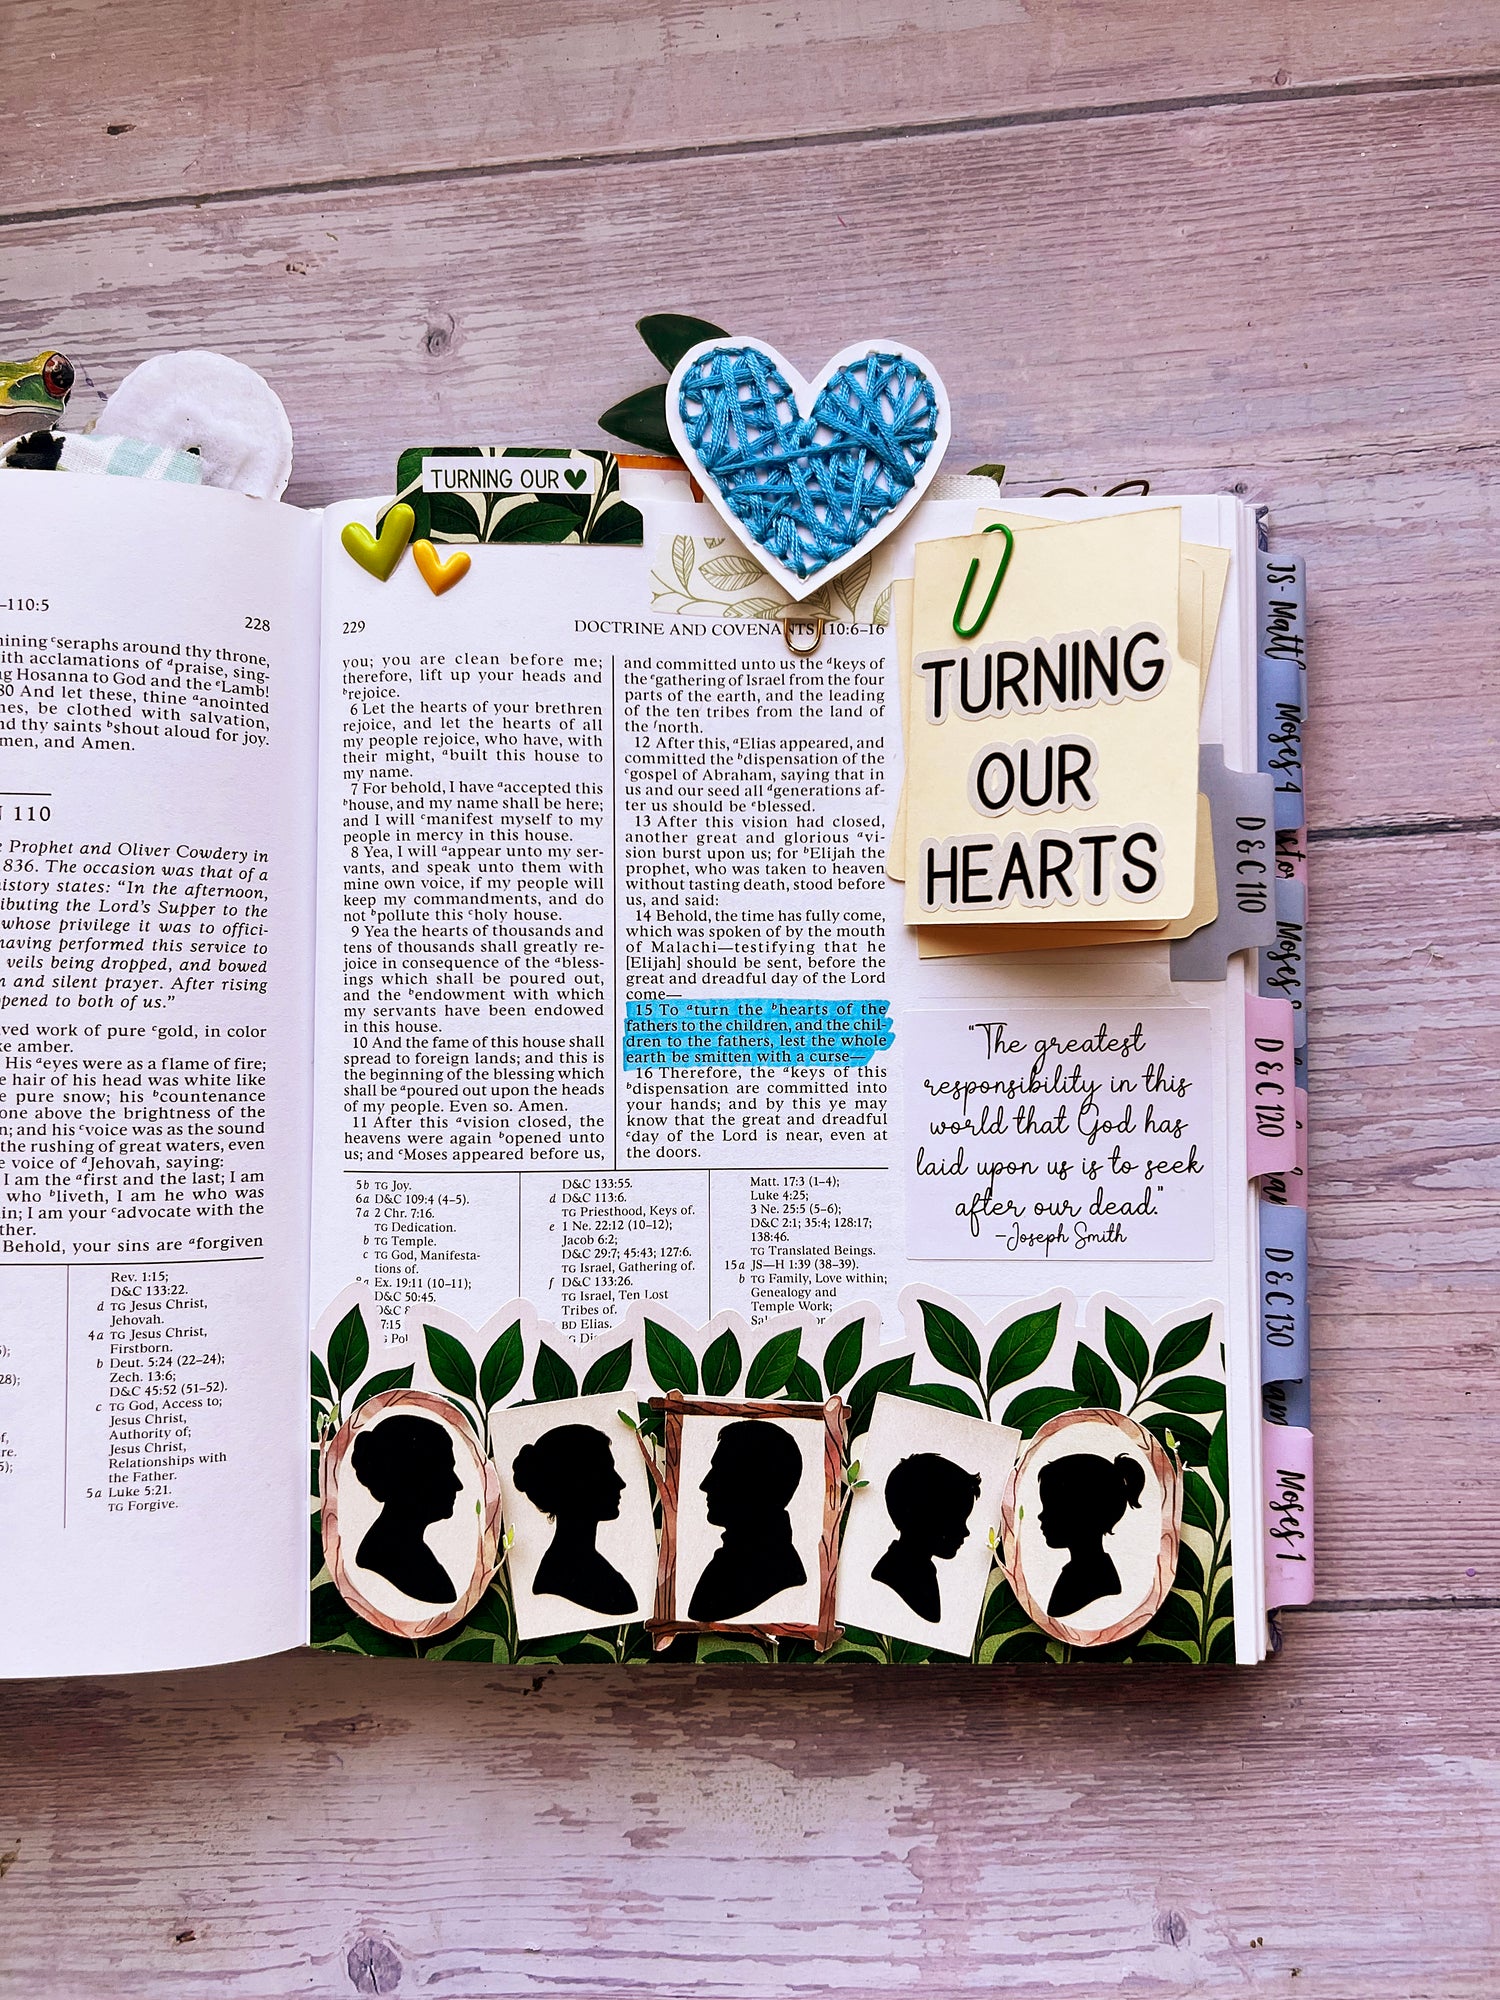 TURNING OUR
–110:5
228
ᶜseraphs around thy throne,
ith acclamations of ᵈpraise, sing-
Hosanna to God and the ᵉLamb!
80 And let these, thine ᵃanointed
be clothed with salvation,
thy saints ᵇshout aloud for joy.
men, and Amen.
110
Prophet and Oliver Cowdery in
836. The occasion was that of a
history states: “In the afternoon,
ibuting the Lord’s Supper to the
whose privilege it was to offici-
having performed this service to
veils being dropped, and bowed
and silent prayer. After rising
opened to both of us.”
work of pure ᶜgold, in color
amber.
His ᵃeyes were as a flame of fire;
hair of his head was white like
pure snow; his ᵇcountenance
one above the brightness of the
and his ᶜvoice was as the sound
the rushing of great waters, even
voice of ᵈJehovah, saying:
I am the ᵃfirst and the last; I am
who ᵇliveth, I am he who was
I am your ᶜadvocate with the
ther.
Behold, your sins are ᵃforgiven
Rev. 1:15;
D&C 133:22.
d TG Jesus Christ,
Jehovah.
4a TG Jesus Christ,
Firstborn.
b Deut. 5:24 (22–24);
Zech. 13:6;
D&C 45:52 (51–52).
c TG God, Access to;
Jesus Christ,
Authority of;
Jesus Christ,
Relationships with
the Father.
5a Luke 5:21.
TG Forgive.
229
DOCTRINE AND COVENANTS 110:6–16
you; you are clean before me;
therefore, lift up your heads and
ᵇrejoice.
6 Let the hearts of your brethren
rejoice, and let the hearts of all
my people rejoice, who have, with
their might, ᵃbuilt this house to
my name.
7 For behold, I have ᵃaccepted this
ᵇhouse, and my name shall be here;
and I will ᶜmanifest myself to my
people in mercy in this house.
8 Yea, I will ᵃappear unto my ser-
vants, and speak unto them with
mine own voice, if my people will
keep my commandments, and do
not ᵇpollute this ᶜholy house.
9 Yea the hearts of thousands and
tens of thousands shall greatly re-
joice in consequence of the ᵃbless-
ings which shall be poured out,
and the ᵇendowment with which
my servants have been endowed
in this house.
10 And the fame of this house shall
spread to foreign lands; and this is
the beginning of the blessing which
shall be ᵃpoured out upon the heads
of my people. Even so. Amen.
11 After this ᵃvision closed, the
heavens were again ᵇopened unto
us; and ᶜMoses appeared before us,
and committed unto us the ᵈkeys of
the ᵉgathering of Israel from the four
parts of the earth, and the leading
of the ten tribes from the land of
the ᶠnorth.
12 After this, ᵃElias appeared, and
committed the ᵇdispensation of the
ᶜgospel of Abraham, saying that in
us and our seed all ᵈgenerations af-
ter us should be ᵉblessed.
13 After this vision had closed,
another great and glorious ᵃvi-
sion burst upon us; for ᵇElijah the
prophet, who was taken to heaven
without tasting death, stood before
us, and said:
14 Behold, the time has fully come,
which was spoken of by the mouth
of Malachi—testifying that he
[Elijah] should be sent, before the
great and dreadful day of the Lord
come—
15 To ᵃturn the ᵇhearts of the
fathers to the children, and the chil-
dren to the fathers, lest the whole
earth be smitten with a curse—
16 Therefore, the ᵃkeys of this
ᵇdispensation are committed into
your hands; and by this ye may
know that the great and dreadful
ᶜday of the Lord is near, even at
the doors.
5b TG Joy.
6a D&C 109:4 (4–5).
7a 2 Chr. 7:16.
TG Dedication.
b TG Temple.
c TG God, Manifesta-
tions of.
8a Ex. 19:11 (10–11);
D&C 50:45.
D&C
7:15
D&C 133:55.
d D&C 113:6.
TG Priesthood, Keys of.
e 1 Ne. 22:12 (10–12);
Jacob 6:2;
D&C 29:7; 45:43; 127:6.
TG Israel, Gathering of.
f D&C 133:26.
TG Israel, Ten Lost
Tribes of.
BD Elias.
Matt. 17:3 (1–4);
Luke 4:25;
3 Ne. 25:5 (5–6);
D&C 2:1; 35:4; 128:17;
138:46.
TG Translated Beings.
15a JS—H 1:39 (38–39).
b TG Family, Love within;
Genealogy and
Temple Work;
TURNING
OUR
HEARTS
“The greatest
responsibility in this
world that God has
laid upon us is to seek
after our dead.”
-Joseph Smith
JS-Matt
Moses 4
D&C 110
Moses
D&C 120
D&C 130
Moses 1